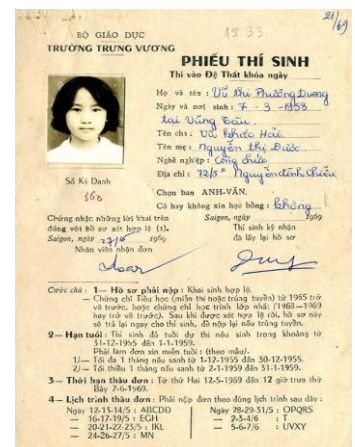 21/69
1533
BỘ GIÁO DỤC
TRƯỜNG TRƯNG VƯƠNG
PHIẾU THÍ SINH
Thi vào Đệ Thất khóa ngày
Họ và tên : Vũ thị Phương Dung
Ngày và nơi sinh : 7 - 3 - 1958
tại Vũng Tàu.
Tên cha : Vũ Khắc Hải.
Tên mẹ : Nguyễn thị Đức.
Nghề nghiệp : Công chức
Địa chỉ : 72/5 Nguyễn đình Chiểu
Số Ký Danh
360
Chọn ban ANH-VĂN.
Có hay không xin học bổng : không
Chứng nhật những lời khai trên
đúng với hồ sơ xét hợp lệ (1).
Saigon, ngày 27/5 1969
Nhân viên nhận đơn
Saigon, ngày 1969
Thí sinh ký nhận
đã lấy lại hồ sơ
Cước chú : 1— Hồ sơ phải nộp : Khai sinh hợp lệ.
— Chứng chỉ Tiểu học (miễn thi hoặc trúng tuyển) từ 1965 trở
về trước, hoặc chứng chỉ học trình lớp nhất (1968—1969
hay trở về trước). Sau khi được xét hợp lệ rồi, hồ sơ này
sẽ trả lại ngay cho thí sinh, để nộp lại nếu trúng tuyển.
2—Hạn tuổi : Thí sinh đủ tuổi dự thi nếu sinh trong khoảng từ
31-12-1955 đến 1-1-1959.
Phải làm đơn xin miễn tuổi : (theo mẫu).
1)— Tối đa 1 tháng nếu sanh từ 1-12-1955 đến 30-12-1955.
2)— Tối thiểu 1 tháng nếu sanh từ 2-1-1959 đến 31-1-1959.
3— Thời hạn thâu đơn : Từ thứ Hai 12-5-1969 đến 12 giờ trưa thứ
Bảy 7-6-1969.
4— Lịch trình thâu đơn : Phải nộp đơn theo đúng lịch trình sau đây :
Ngày 12-13-14/5 : ABCDD
— 16-17-19/5 : EGH
— 20-21-22-23/5 : IKL
— 24-26-27/5 : MN
Ngày 28-29-31/5 : OPQRS
— 2-3-4/6 : T
— 5-6-7/6 : UVXY